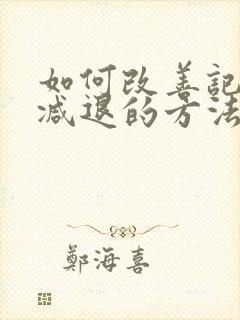 如何改善記
減退的方法
鄭海喜